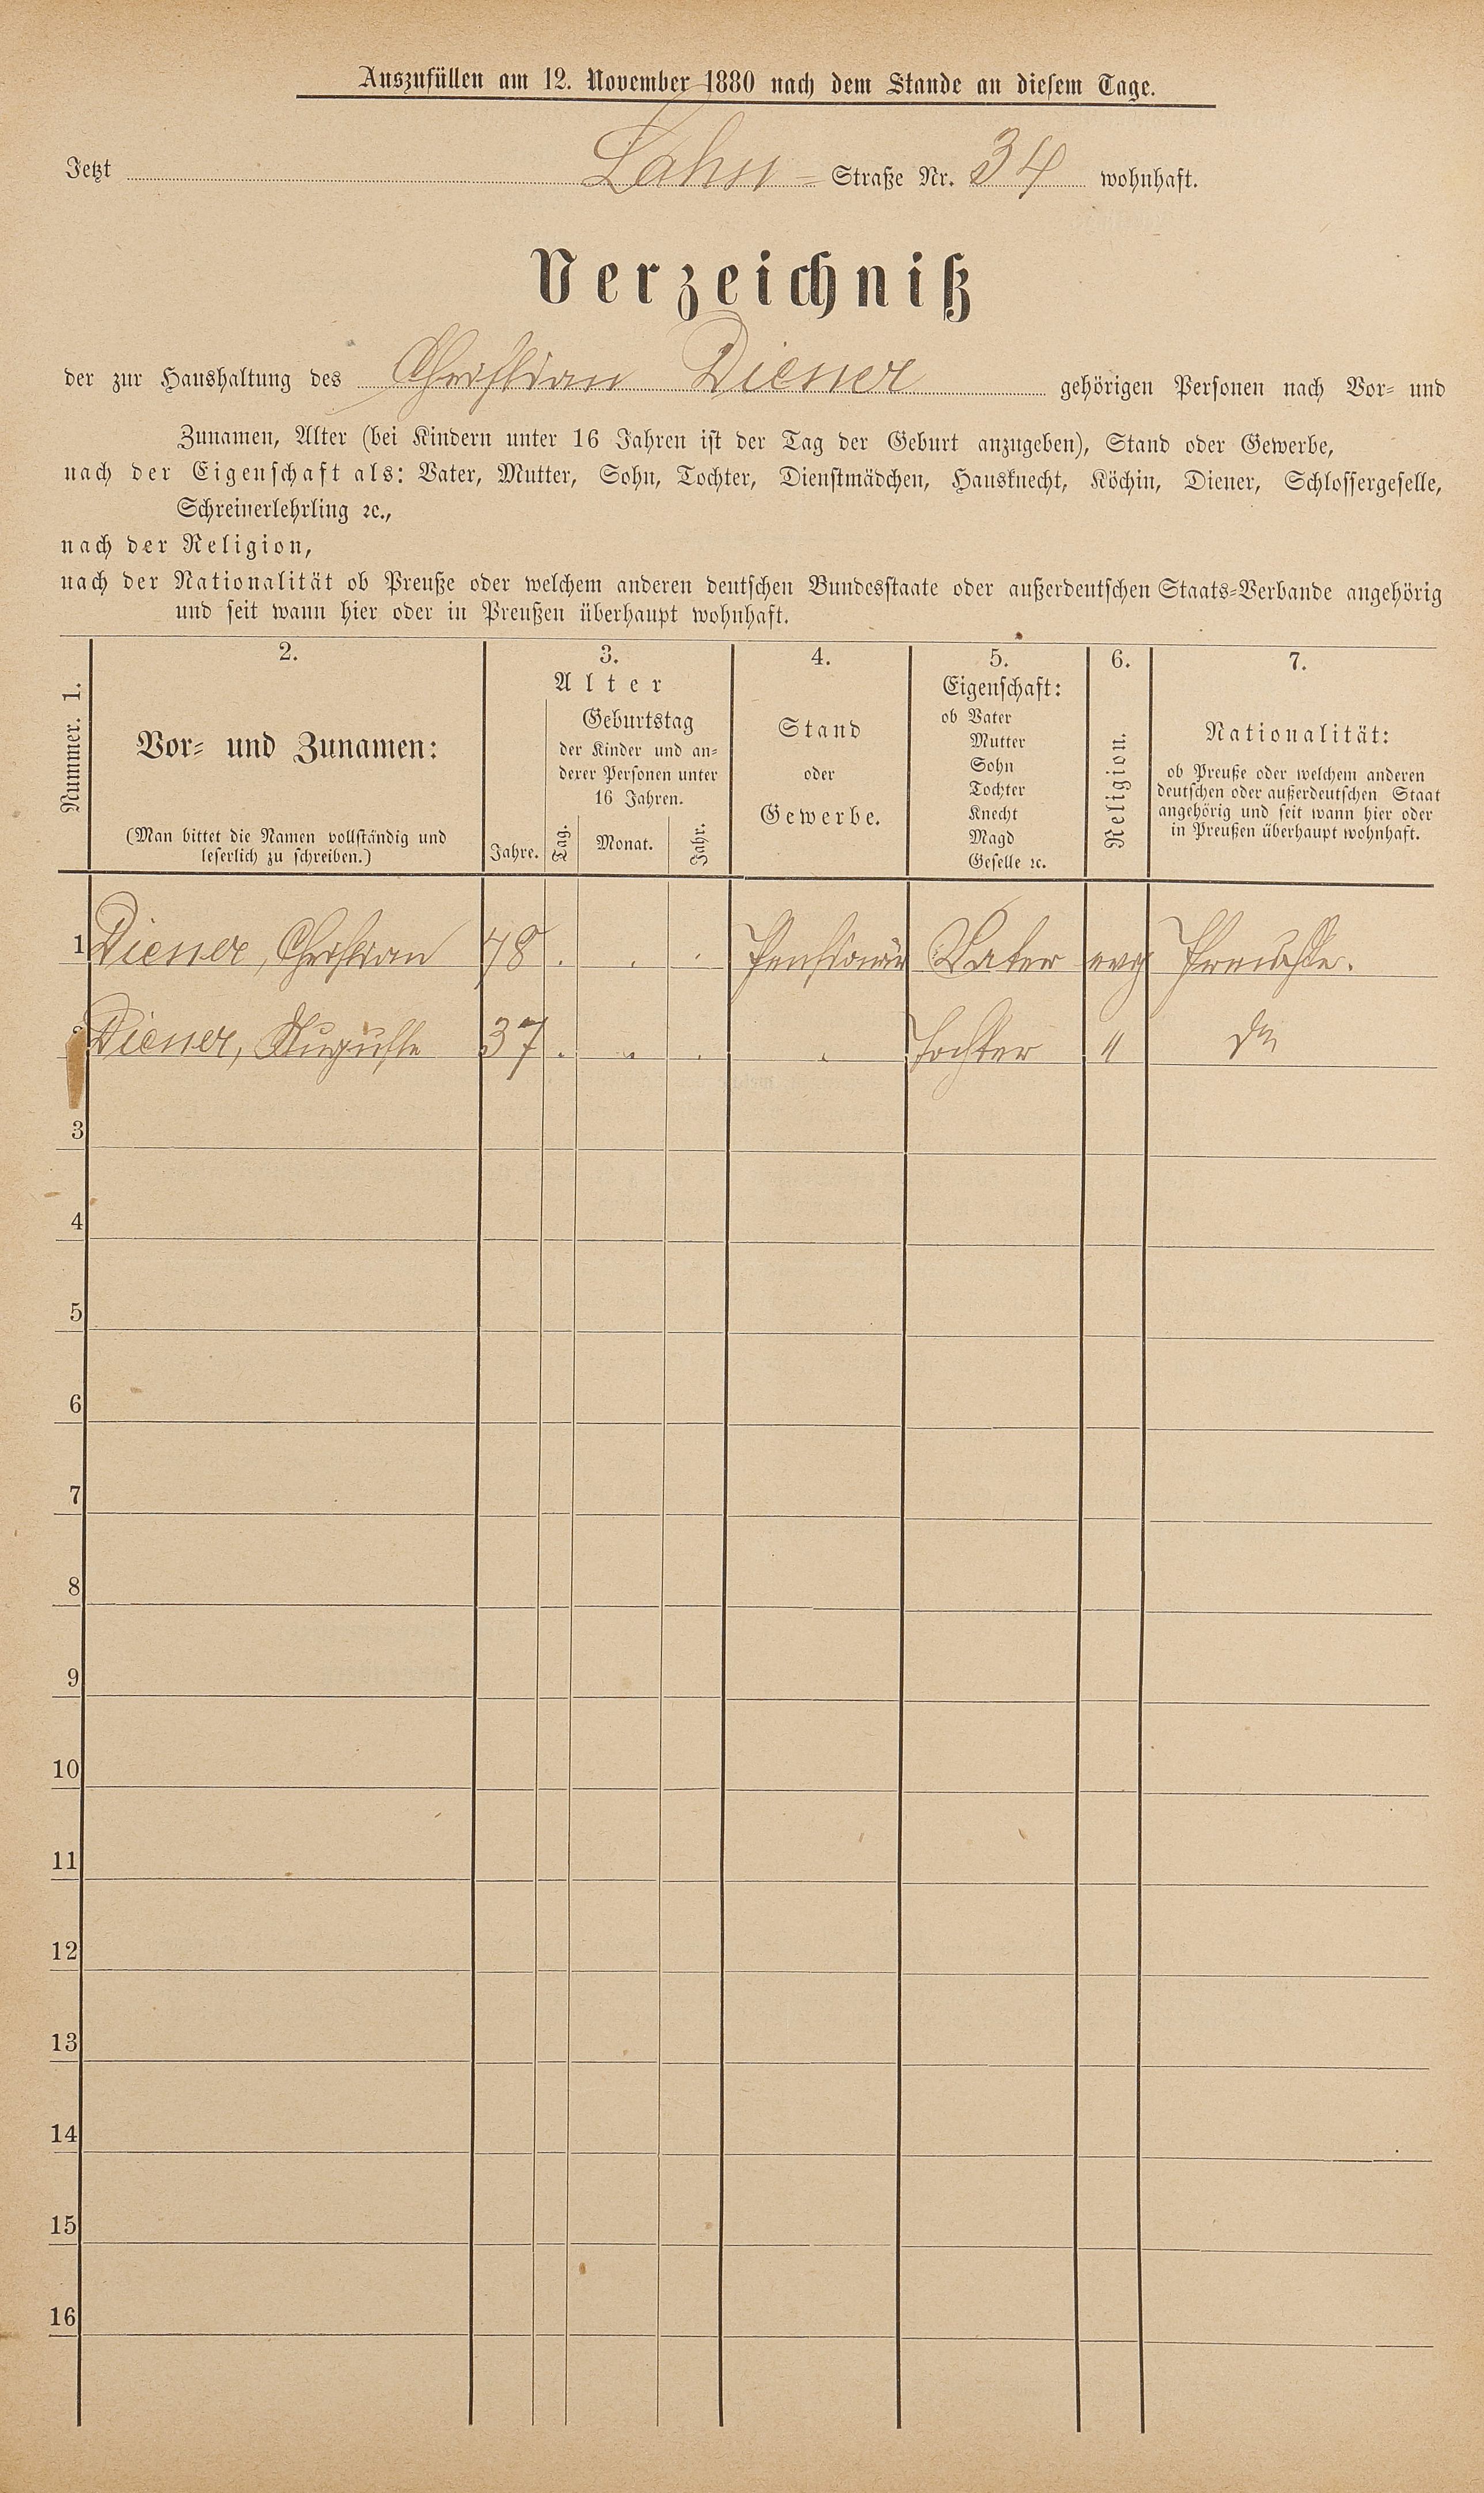 Auszufüllen am 12. November 1880 nach dem Stande an diesem Tage.
Jetzt Lahn- Straße Nr. 34 wohnhaft.
Verzeichniß
der zur Haushaltung des Christian Diener gehörigen Personen nach Vor- und
Zunamen, Alter (bei Kindern unter 16 Jahren ist der Tag der Geburt anzugeben), Stand oder Gewerbe,
nach der Eigenschaft als: Vater, Mutter, Sohn, Tochter, Dienstmädchen, Hausknecht, Köchin, Diener, Schlossergeselle,
Schreinerlehrling ꝛc.,
nach der Religion,
nach der Nationalität ob Preuße oder welchem anderen deutschen Bundesstaate oder außerdeutschen Staats-Verbande angehörig
und seit wann hier oder in Preußen überhaupt wohnhaft.
Nummer. 1.
2.
Vor- und Zunamen:
(Man bittet die Namen vollständig und
leserlich zu schreiben.)
3.
Alter
Jahre.
Geburtstag
der Kinder und an-
derer Personen unter
16 Jahren.
Tag. Monat. Jahr.
4.
Stand
oder
Gewerbe.
5.
Eigenschaft:
ob Vater
Mutter
Sohn
Tochter
Knecht
Magd
Geselle ꝛc.
6.
Religion.
7.
Nationalität:
ob Preuße oder welchem anderen
deutschen oder außerdeutschen Staat
angehörig und seit wann hier oder
in Preußen überhaupt wohnhaft.
1 Diener, Christian 78 . . . Pensionär Vater evg Preusse.
2 Diener, Auguste 37 . " . " Tochter " do
3
4
5
6
7
8
9
10
11
12
13
14
15
16